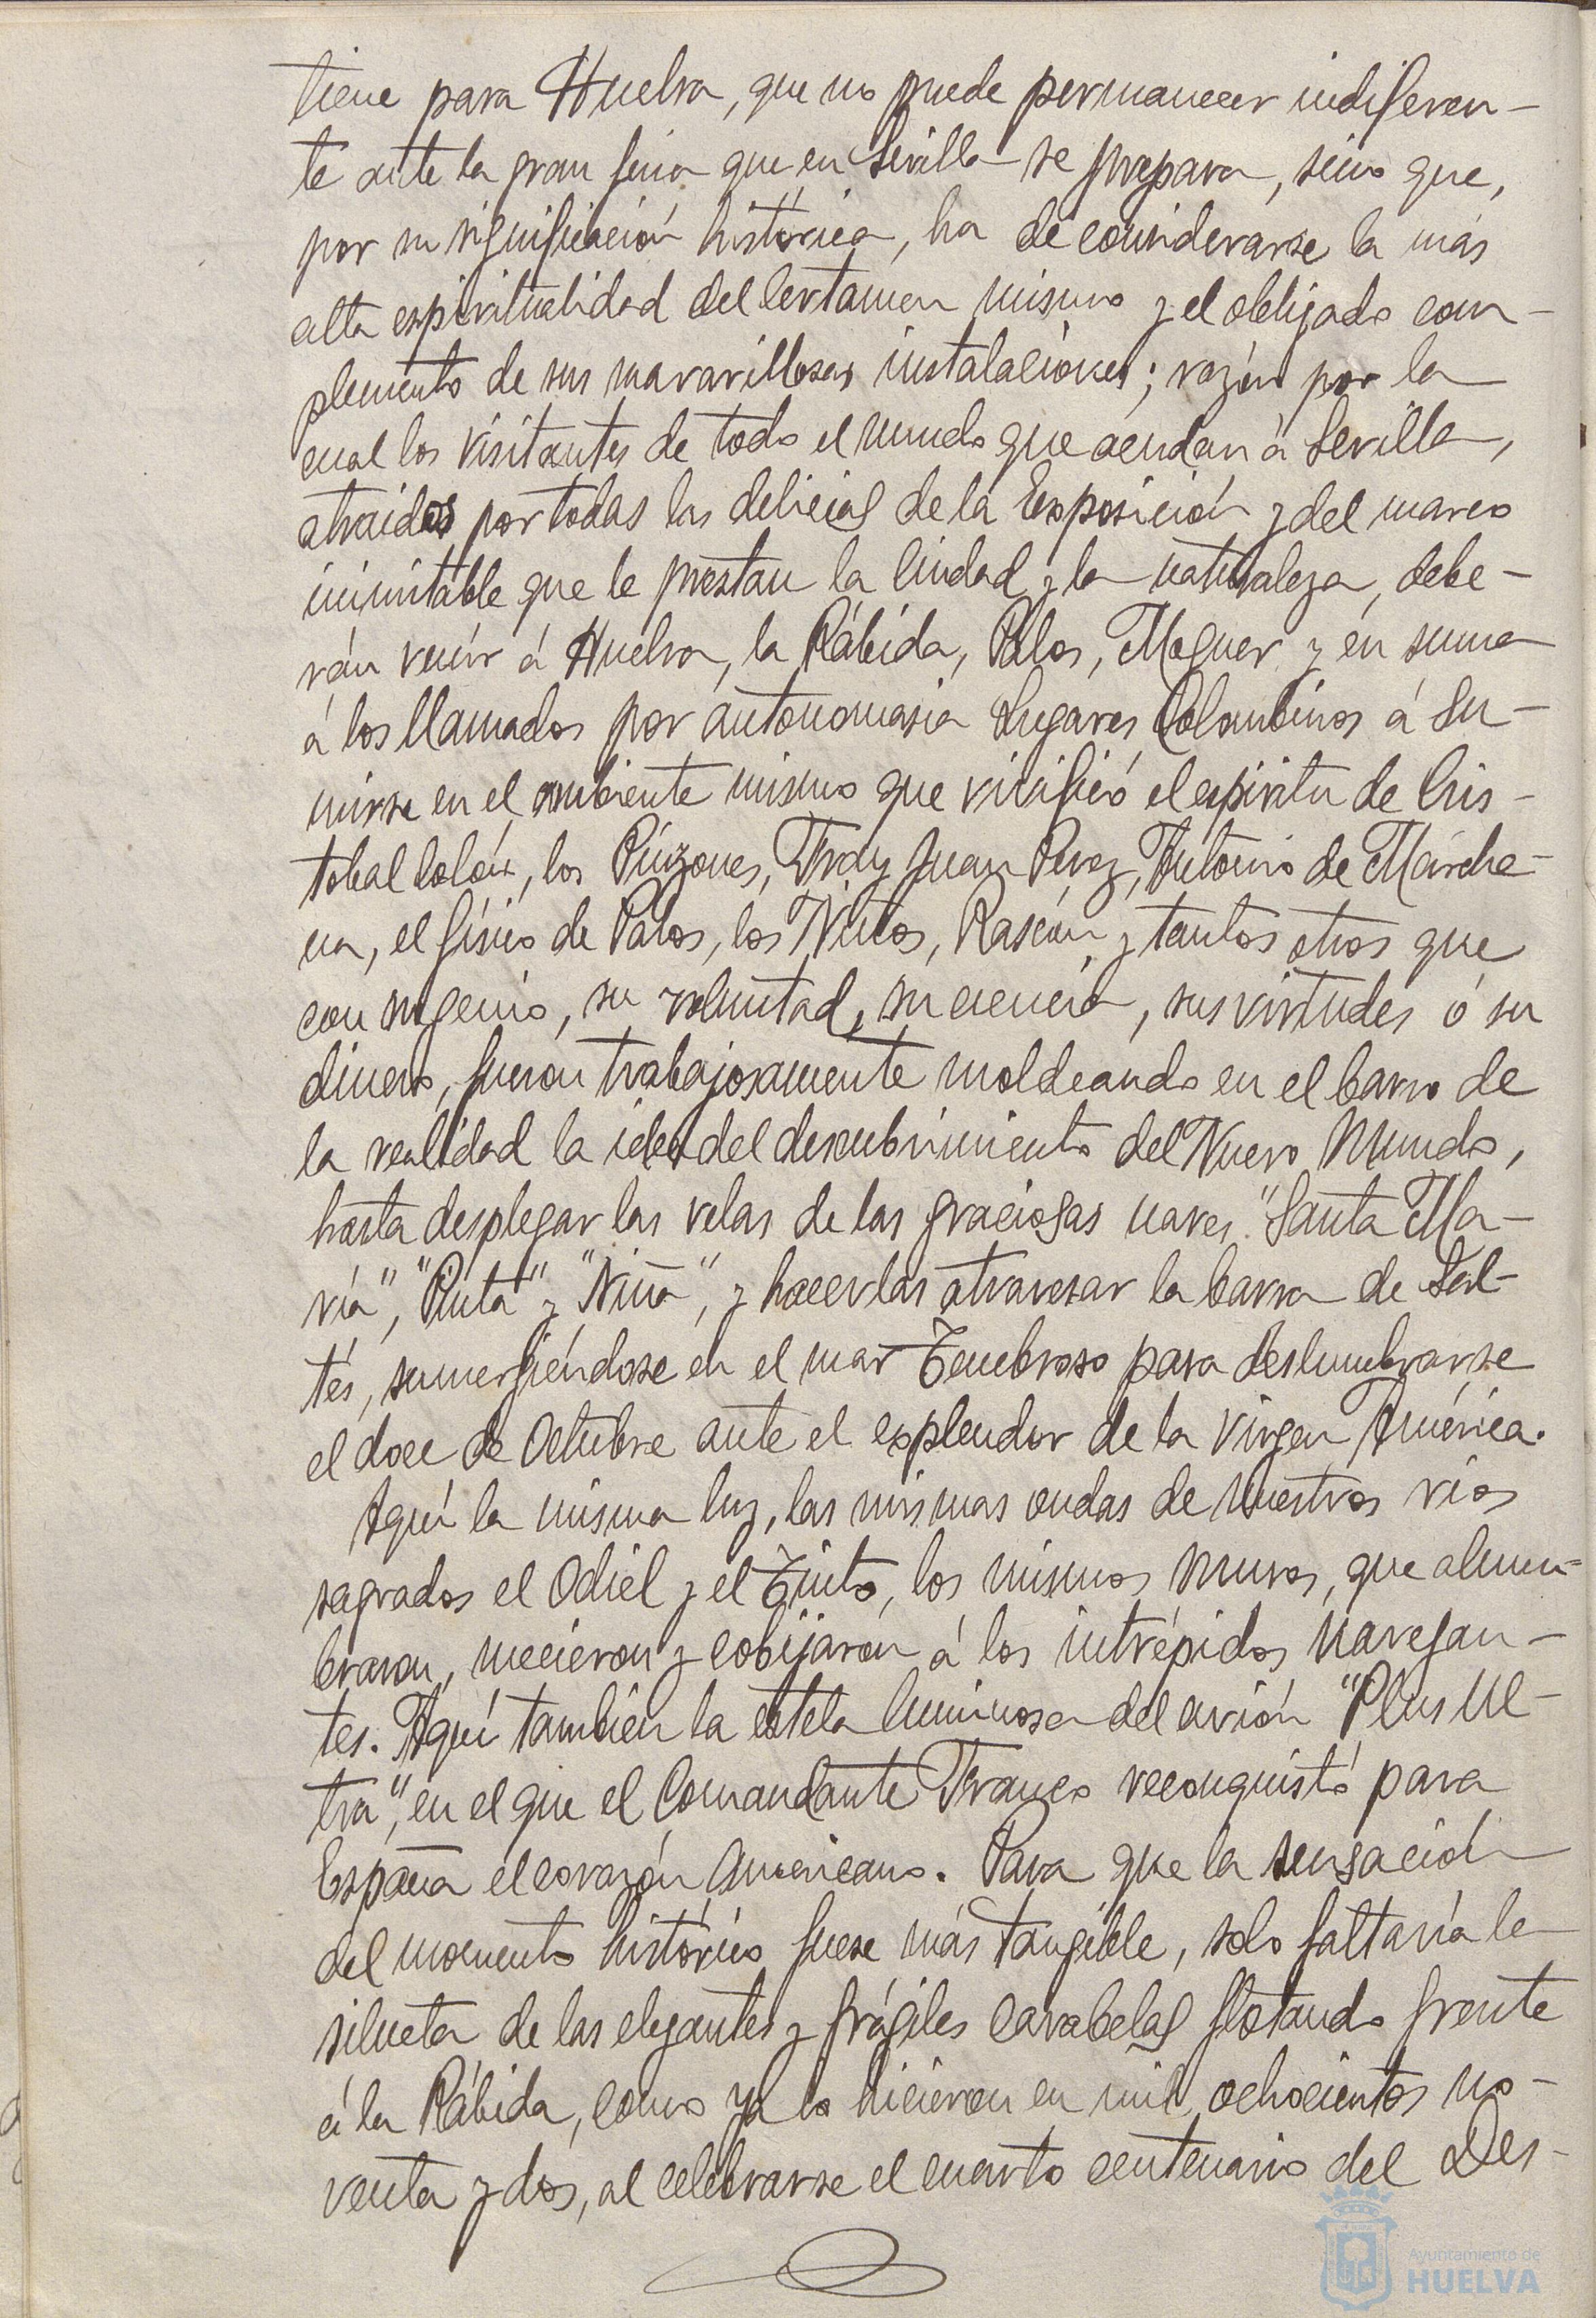 tiene para Huelva, que no puede permanecer indiferen-
te ante la gran feria que en Sevilla se prepara, sino que,
por su significación histórica, ha de considerarse la más
alta espiritualidad del Certamen mismo y el obligado com-
plemento de sus maravillosas instalaciones; razón por la
cual los visitantes de todo el mundo que acudan á Sevilla,
atraidos por todas las delicias de la Exposición y del marco
inimitable que le prestan la Ciudad y la naturaleza, debe-
rán venir á Huelva, la Rábida, Palos, Moguer y en suma
á los llamados por antonomasia Lugares Colombinos á su-
mirse en el ambiente mismo que vivificó el espiritu de Cris-
tobal Colón, los Pinzones, Fray Juan Perez, Antonio de Marche-
na, el físico de Palos, los Niños, Rascón y tantos otros que
con su genio, su voluntad, su ciencia, sus virtudes ó su
dinero, fueron trabajosamente moldeando en el barro de
la realidad la idea del descubrimiento del Nuevo Mundo,
hasta desplegar las velas de las graciosas naves "Santa Ma-
ría", "Pinta" y "Niña", y hacerlas atravesar la barra de Sal-
tés, sumergiéndose en el mar Tenebroso para deslumbrarse
el doce de Octubre ante el explendor de la virgen América.
Aquí la misma luz, las mismas ondas de nuestros rios
sagrados el Odiel y el Tinto, los mismos muros, que alum-
braron, mecieron y cobijaron á los intrépidos navegan-
tes. Aquí también la estela luminosa del avión "Plus Ul-
tra", en el que el Comandante Franco reconquistó para
España el corazón Americano. Para que la sensación
del momento histórico fuese más tangible, solo faltaría la
silueta de las elegantes y frágiles carabelas flotando frente
á la Rábida, como ya lo hicieron en mil ochocientos no-
venta y dos, al celebrarse el cuarto centenario del Des-
Ayuntamiento de
HUELVA